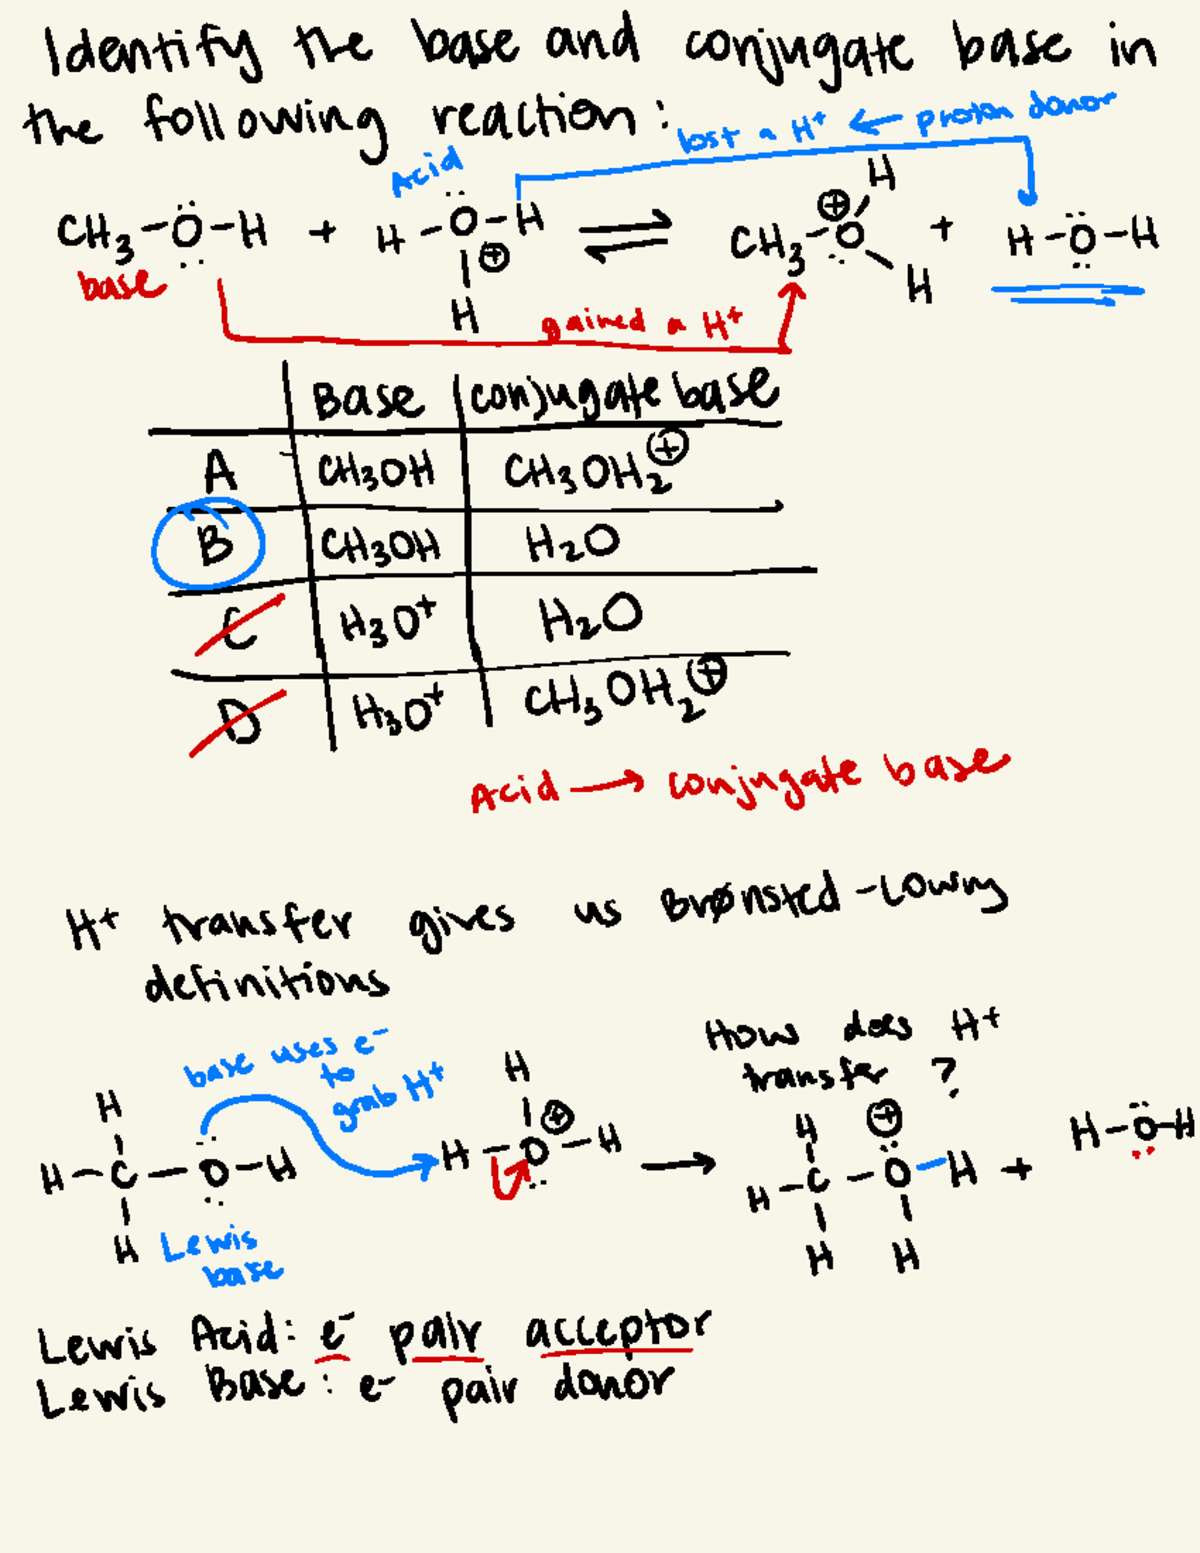 Identify the base and conjugate base in
the following reaction:
lost a H⁺ ← proton donor
Acid
CH₃-Ö-H + H-Ö-H ⇌ CH₃-O + H-Ö-H
⊕ H
H
H
⊕
H
base
gained a H⁺
Base conjugate base
A CH₃OH CH₃OH₂⊕
B CH₃OH H₂O
C H₃O⁺ H₂O
D H₃O⁺ CH₃OH₂⊕
Acid → conjugate base
H⁺ transfer gives us Brønsted-Lowry
definitions
How does H⁺
transfer ?
base uses e⁻
to
grab H⁺
H
H-C-O-H
H
H
⊕
H-O-H
→
H ⊕
H-C-O-H + H-O-H
H H
Lewis
base
Lewis Acid: e⁻ pair acceptor
Lewis Base: e⁻ pair donor